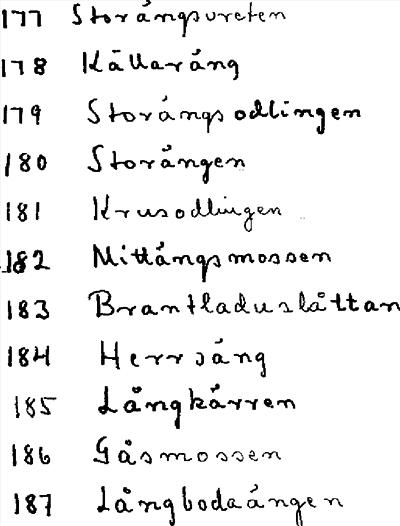 177 Storångsvreten
178 Källaräng
179 Storångsodlingen
180 Storängen
181 Krusodlingen
182 Mittångsmossen
183 Brantladuslåttan
184 Herrsång
185 Långkärren
186 Gåsmossen
187 Långbodaängen